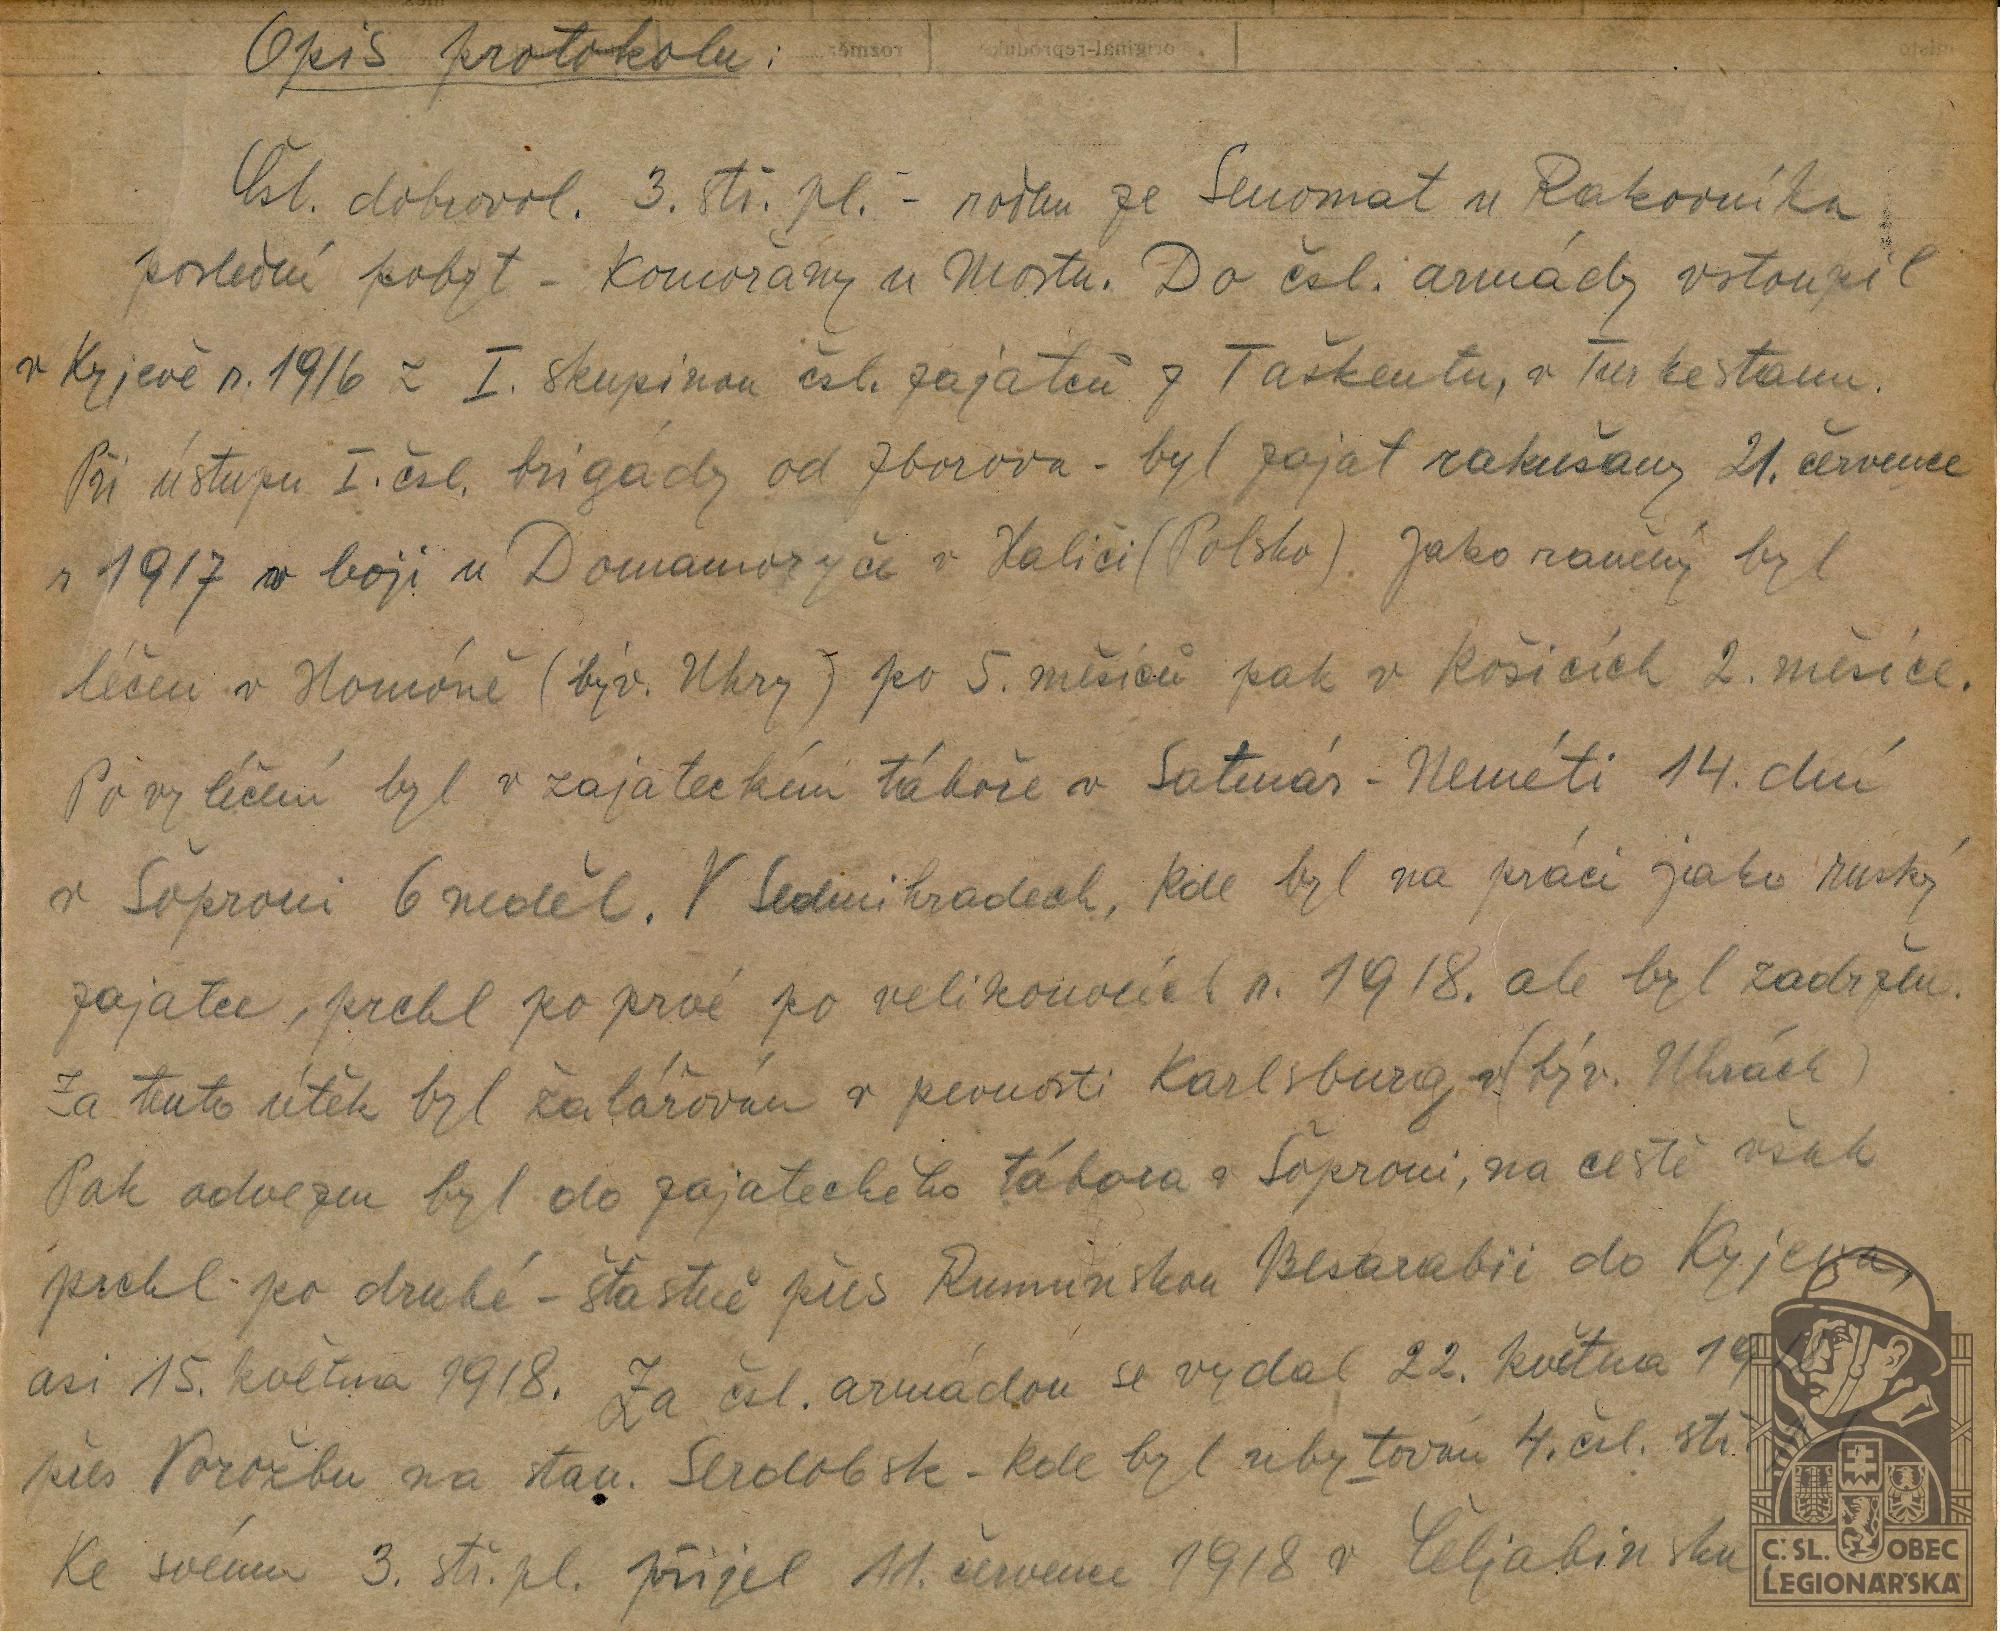 Opis protokolu:
Čsl. dobrovol. 3. stř. pl. - rodem ze Senomat u Rakovníka
poslední pobyt - Komořany u Mostu. Do čsl. armády vstoupil
v Kyjevě r. 1916 z I. skupinou čsl. zajatců z Taškentu, v Turkestanu.
Při ústupu I. čsl. brigády od Zborova - byl zajat rakušany 21. července
r 1917 v boji u Domamoryče v Haliči (Polsko). Jako raněný byl
léčen v Homóně (býv. Uhry) po 5. měsíců pak v Košicích 2. měsíce.
Po vyléčení byl v zajateckém táboře v Satmár - Neméti 14. dní
v Šoproni 6 neděl. V Sedmihradech, kde byl na práci jako ruský
zajatec, prchl po prvé po velikonocích r. 1918. ale byl zadržen.
Za tento útěk byl žalářován v pevnosti Karlsburg v (býv. Uhrách)
Pak odvezen byl do zajateckého tábora v Šoproni, na cestě však
prchl po druhé - štastně přes Rumunskou Besarabii do Kyjeva,
asi 15. května 1918. Za čsl. armádou se vydal 22. května 1918
přes Vorožbu na stan. Serdobsk - kde byl ubytován 4. čsl. stř.
Ke svému 3. stř. pl. přijel 11. července 1918 v Čeljabinsku
Č. SL. OBEC
LEGIONÁŘSKÁ